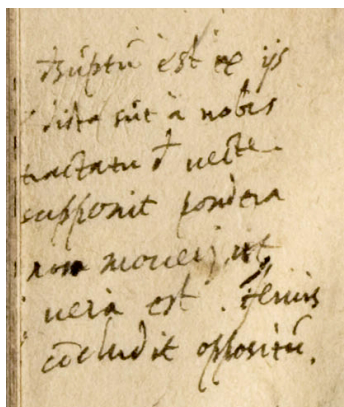 d̃sũptũ est ex ijs
dicta sũt à nobis
tractatu d̃ uecte.
supponit pondera
non moueri, ut
uera est.
cõcludit oppositũ.